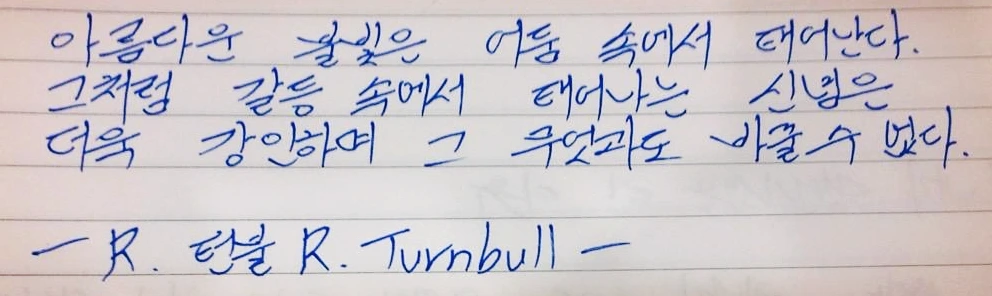 아름다운 불빛은 어둠 속에서 태어난다.
그처럼 갈등 속에서 태어나는 신념은
더욱 강인하며 그 무엇과도 바꿀 수 없다.
— R. 턴불 R. Turnbull —